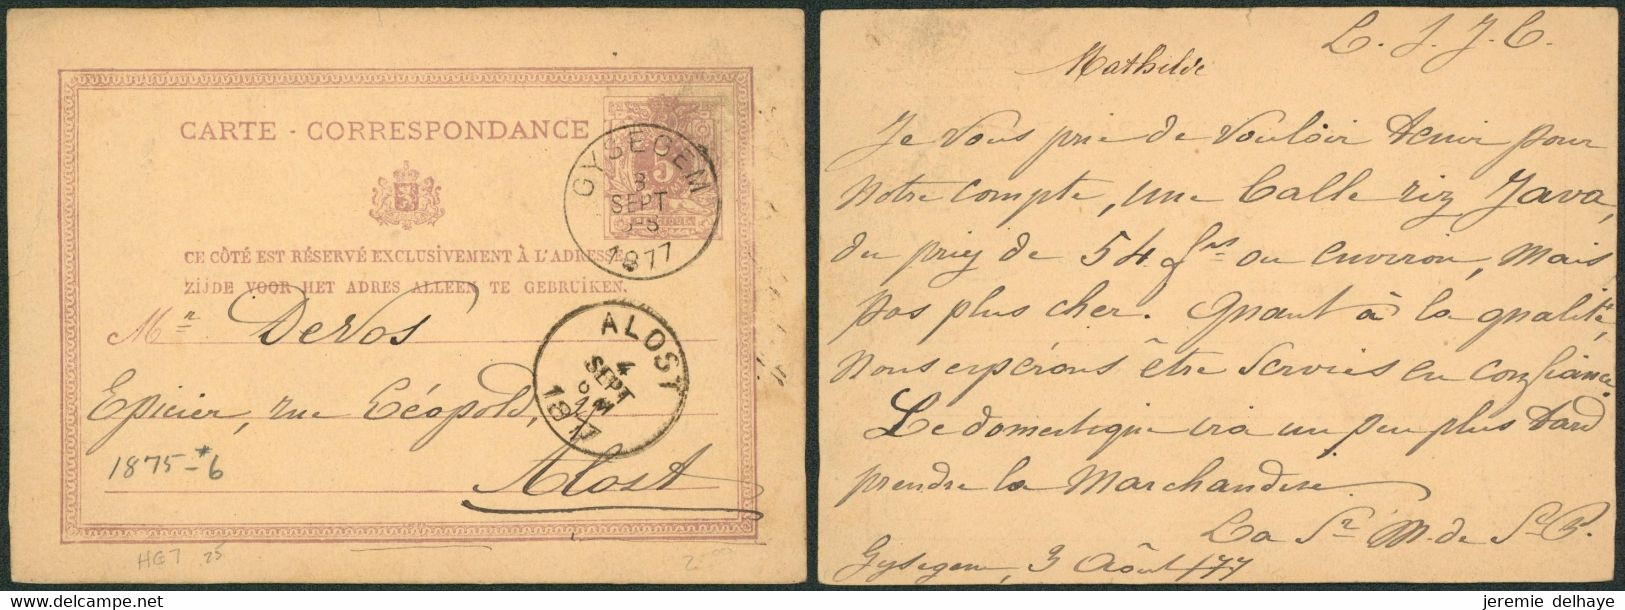 CARTE - CORRESPONDANCE
5
GYSEGEM
3
SEPT
1877
CE CÔTÉ EST RÉSERVÉ EXCLUSIVEMENT À L'ADRESSE.
ZIJDE VOOR HET ADRES ALLEEN TE GEBRUIKEN.
Mr DeVos
ALOST
4
SEPT
1877
Epicier, rue Léopold,
1875-*6
Alost
HG7 25
L. S. J. C.
Mathilde
Je vous prie de vouloir tenir pour
notre compte, une balle riz Java,
du prix de 54 frs ou environ, mais
pas plus cher. Quant à la qualité,
nous espérons être servies en confiance
Le domestique ira un peu plus tard
prendre la marchandise.
La Sr M. de St P.
Gysegem, 3 Août 77
jeremie delhaye